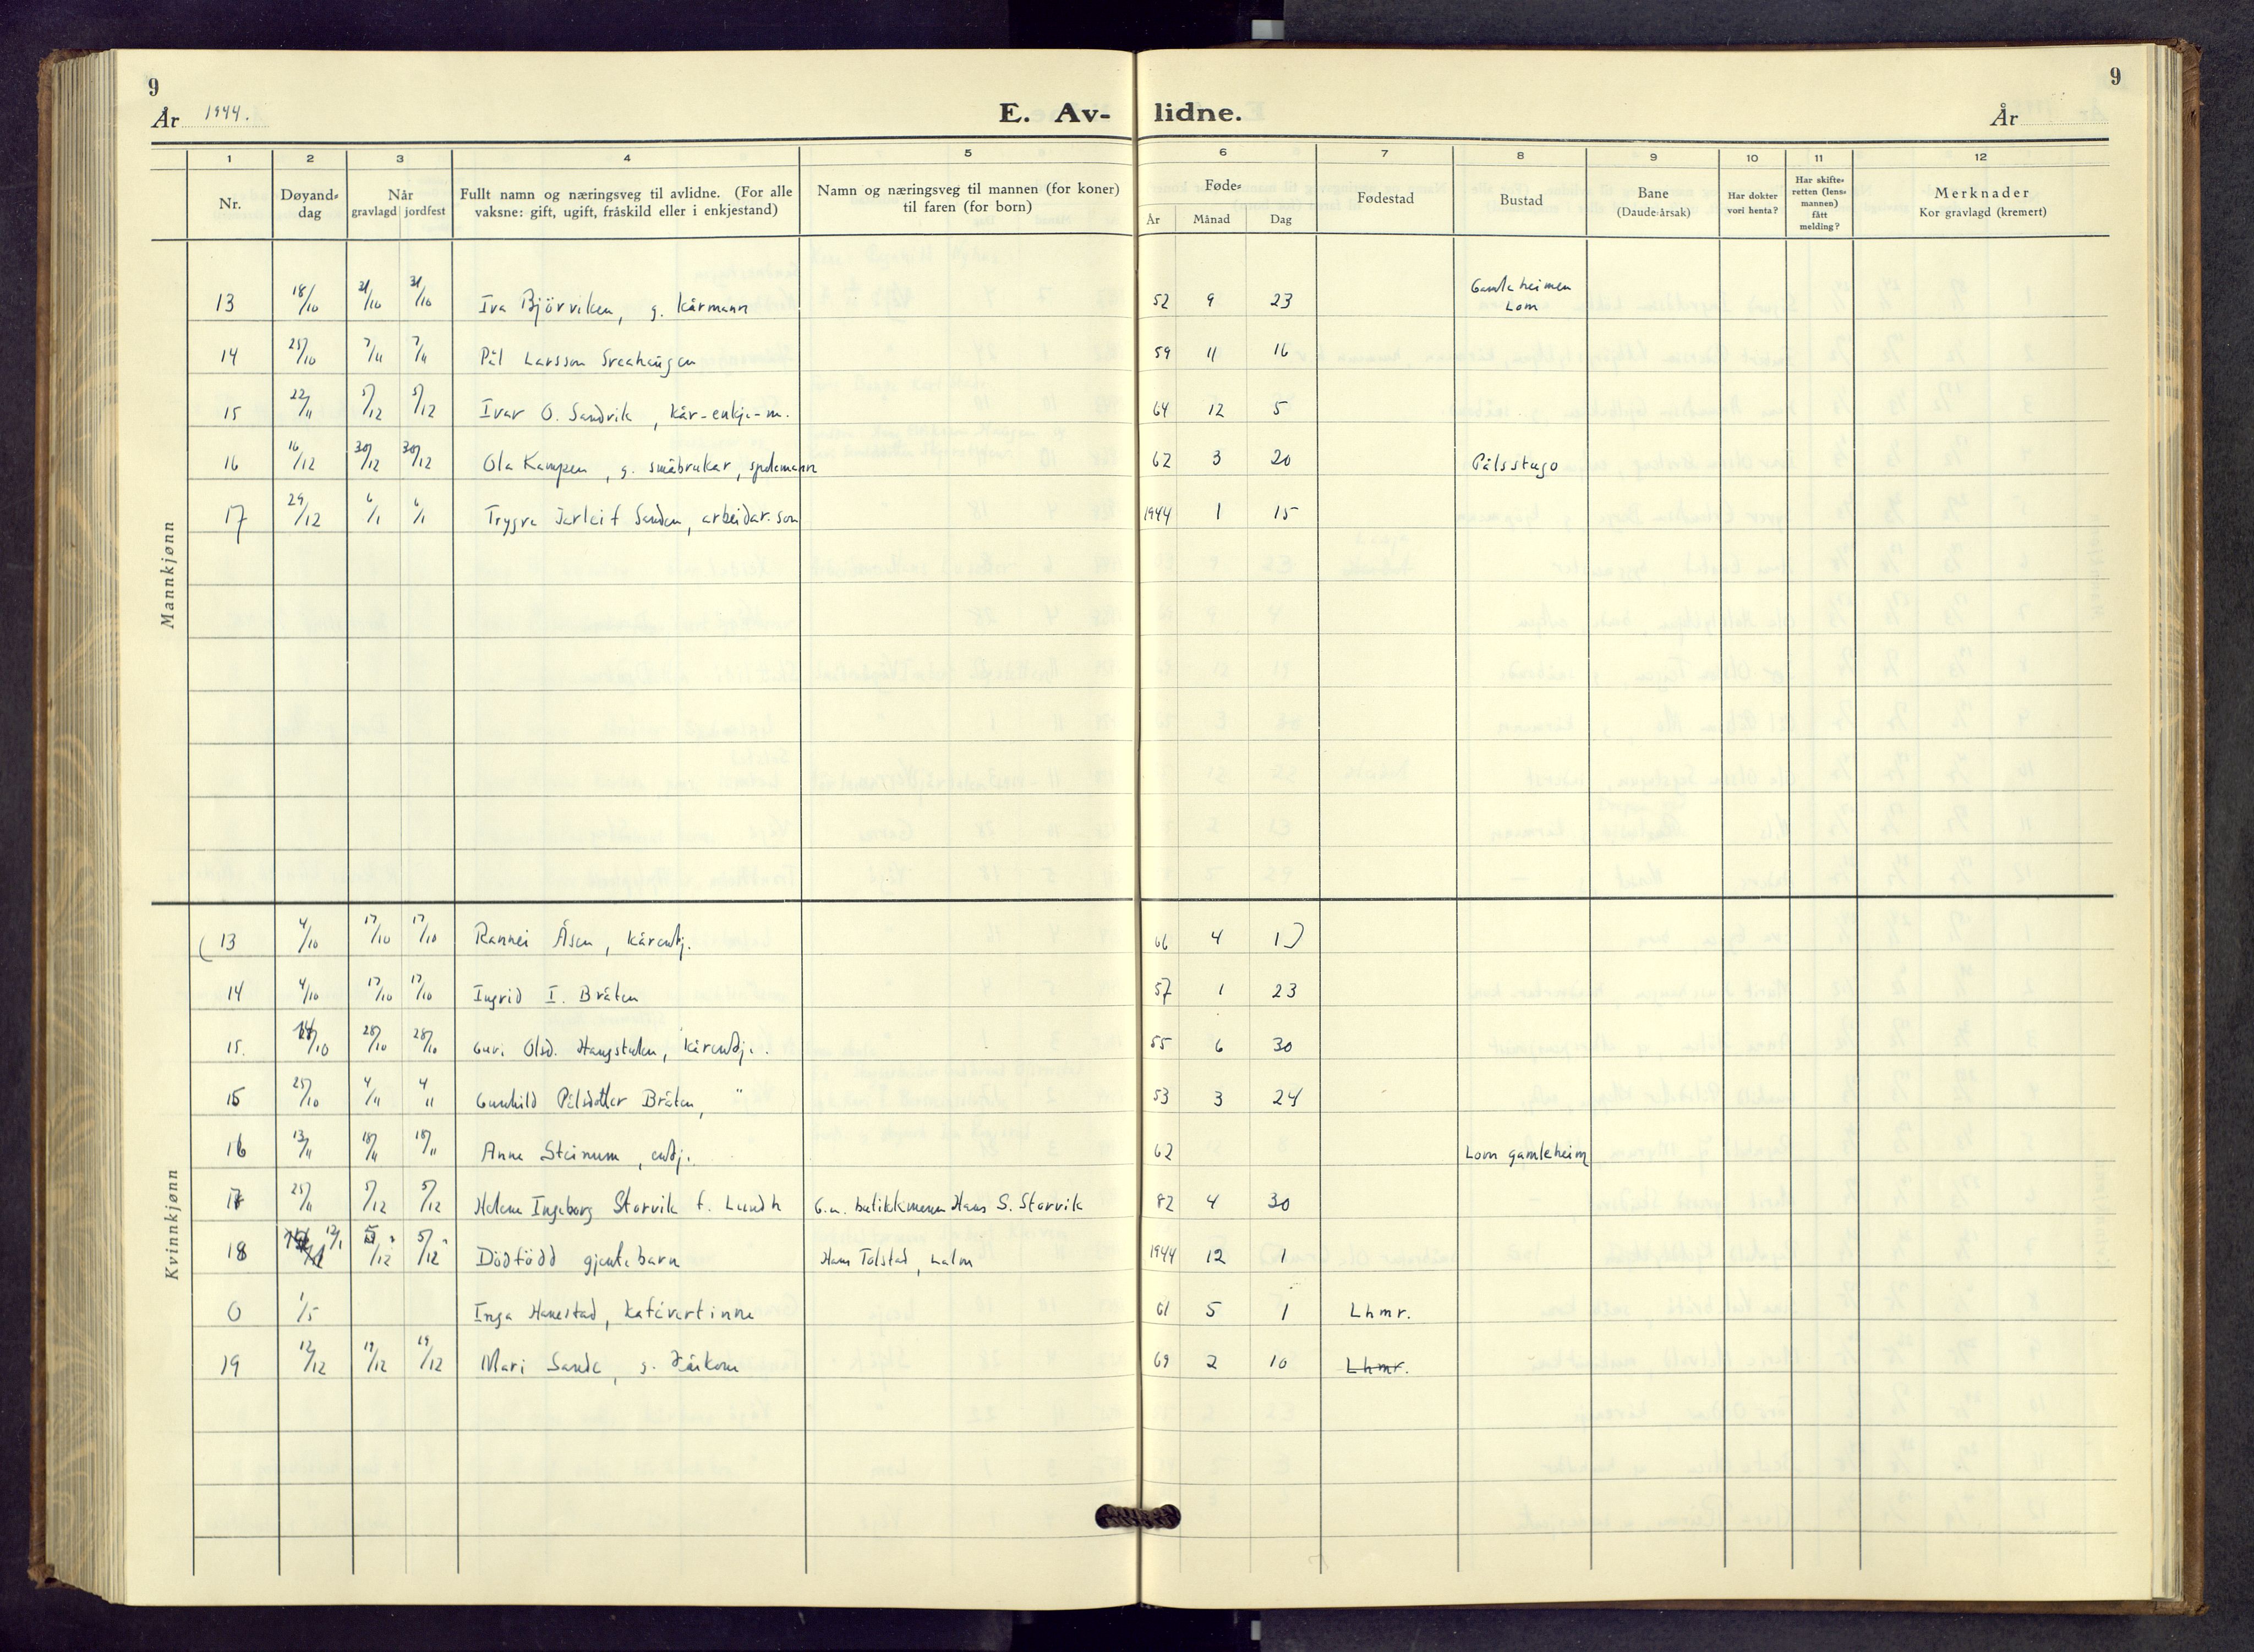 9
9
År 1944.
E. Av- lidne.
År
1 2 3 4 5 6 7 8 9 10 11 12
Nr.
Døyand-
dag
Når
gravlagd jordfest
Fullt namn og næringsveg til avlidne. (For alle
vaksne: gift, ugift, fråskild eller i enkjestand)
Namn og næringsveg til mannen (for koner)
til faren (for born)
Føde-
År Månad Dag
Fødestad
Bustad
Bane
(Daude-årsak)
Har dokter
vori henta?
Har skifte-
retten (lens-
mannen)
fått
melding?
Merknader
Kor gravlagd (kremert)
Mannkjønn
13 18/10 31/10 31/10 Iva Björviken, g. kårmann 52 9 23 Gamleheimen
Lom
14 25/10 7/11 7/11 Pål Larsson Sveahaugen 59 11 16
15 22/11 5/12 5/12 Ivar O. Sandvik, kår-enkje-m. 64 12 5
16 16/12 30/12 30/12 Ola Kampen, g. småbrukar, spelemann 62 3 20 Pålsstugo
17 29/12 6/1 6/1 Trygve Jarleif Sanden, arbeidar.son 1944 1 15
Kvinnkjønn
(13 4/10 17/10 17/10 Rannei Åsen, kårenkj. 66 4 1)
14 4/10 17/10 17/10 Ingrid I. Bråten 57 1 23
15. /10 28/10 28/10 Guri Olsd. Haugstulen, kårenkj. 55 6 30
15 25/10 4/11 4/11 Gunhild Pålsdotter Bråten, " 53 3 24
16 13/11 18/11 18/11 Anne Steinum, enkj. 62 Lom gamleheim
17 25/11 5/12 5/12 Helene Ingeborg Storvik f. Lundh G.m. butikkmann Hans S. Storvik 82 4 30
18 12/1 5/12 5/12 Dödfödd gjentebarn Hans Tolstad, Lalm 1944 12 1
0 1/5 Inga Hanestad, kafévertinne 61 5 1 Lhmr.
19 12/12 19/12 19/12 Mari Sande, g. kårkone 69 2 10 Lhmr.